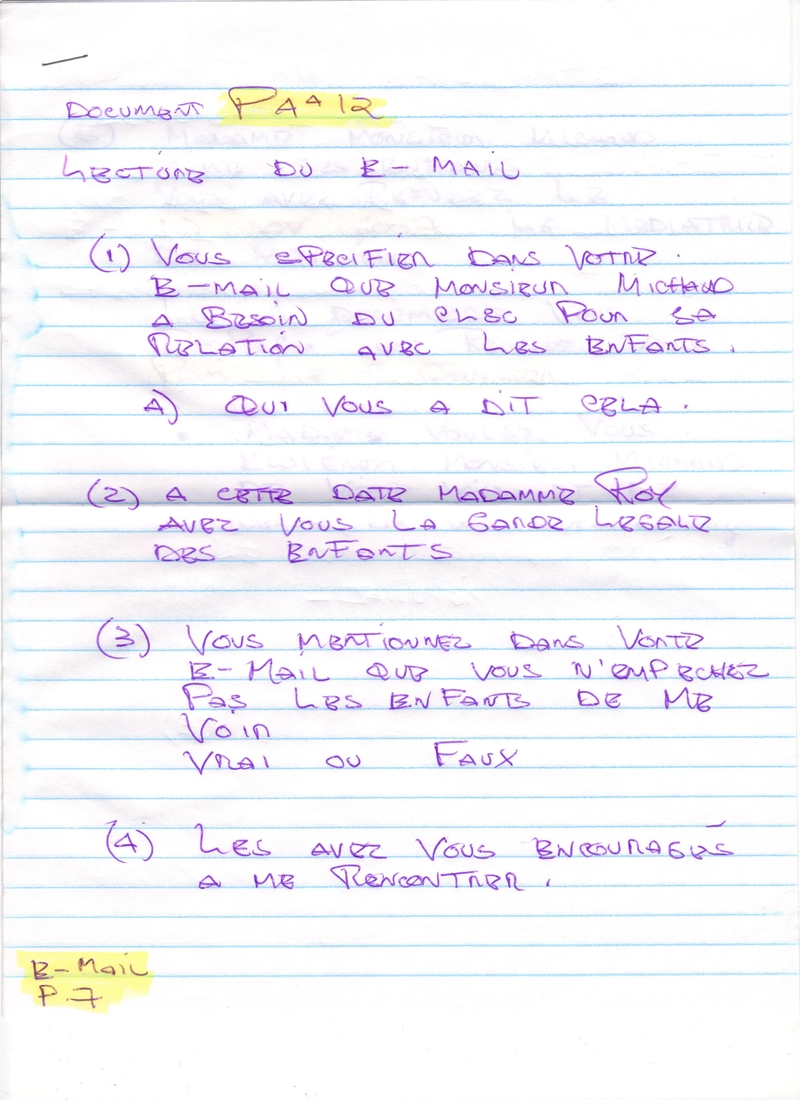 DOCUMENT PAA12
LECTURE DU E-MAIL
(1) VOUS SPECIFIER DANS VOTRE
E-MAIL QUE MONSIEUR MICHAUD
A BESOIN DU CLSC POUR SA
RELATION AVEC LES ENFANTS.
A) QUI VOUS A DIT CELA.
(2) A CETTE DATE MADAMME ROY
AVEZ VOUS LA GARDE LEGALE
DES ENFANTS
(3) VOUS MENTIONNEZ DANS VOTRE
E-MAIL QUE VOUS N'EMPECHEZ
PAS LES ENFANTS DE ME
VOIR
VRAI OU FAUX
(4) LES AVEZ VOUS ENCOURAGÉS
A ME RENCONTRER.
E-MAIL
P.7